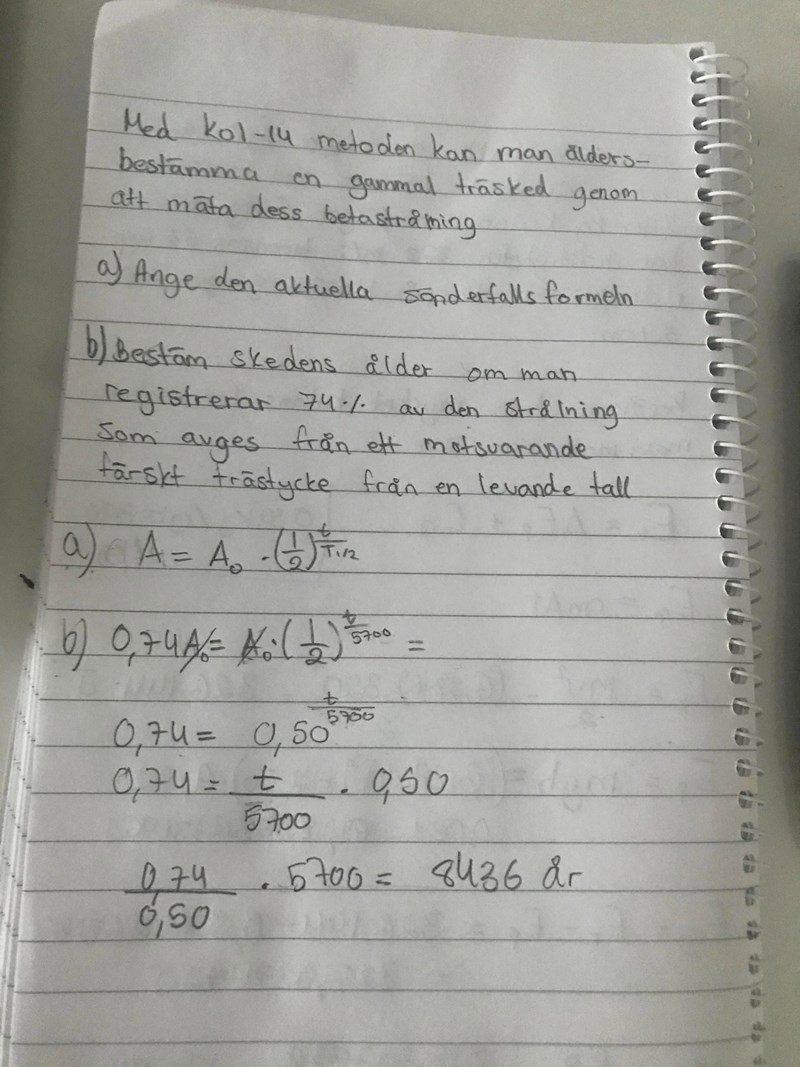 Med kol-14 metoden kan man ålders-
bestämma en gammal träsked genom
att mäta dess betastrålning
a) Ange den aktuella sönderfallsformeln
b) Bestäm skedens ålder om man
registrerar 74% av den strålning
som avges från ett motsvarande
färskt trästycke från en levande tall
a) A = A₀ · (1/2)^(t/T1/2)
b) 0,74A₀ = A₀ · (1/2)^(t/5700) =
0,74 = 0,50^(t/5700)
0,74 = t/5700 · 0,50
0,74/0,50 · 5700 = 8436 år